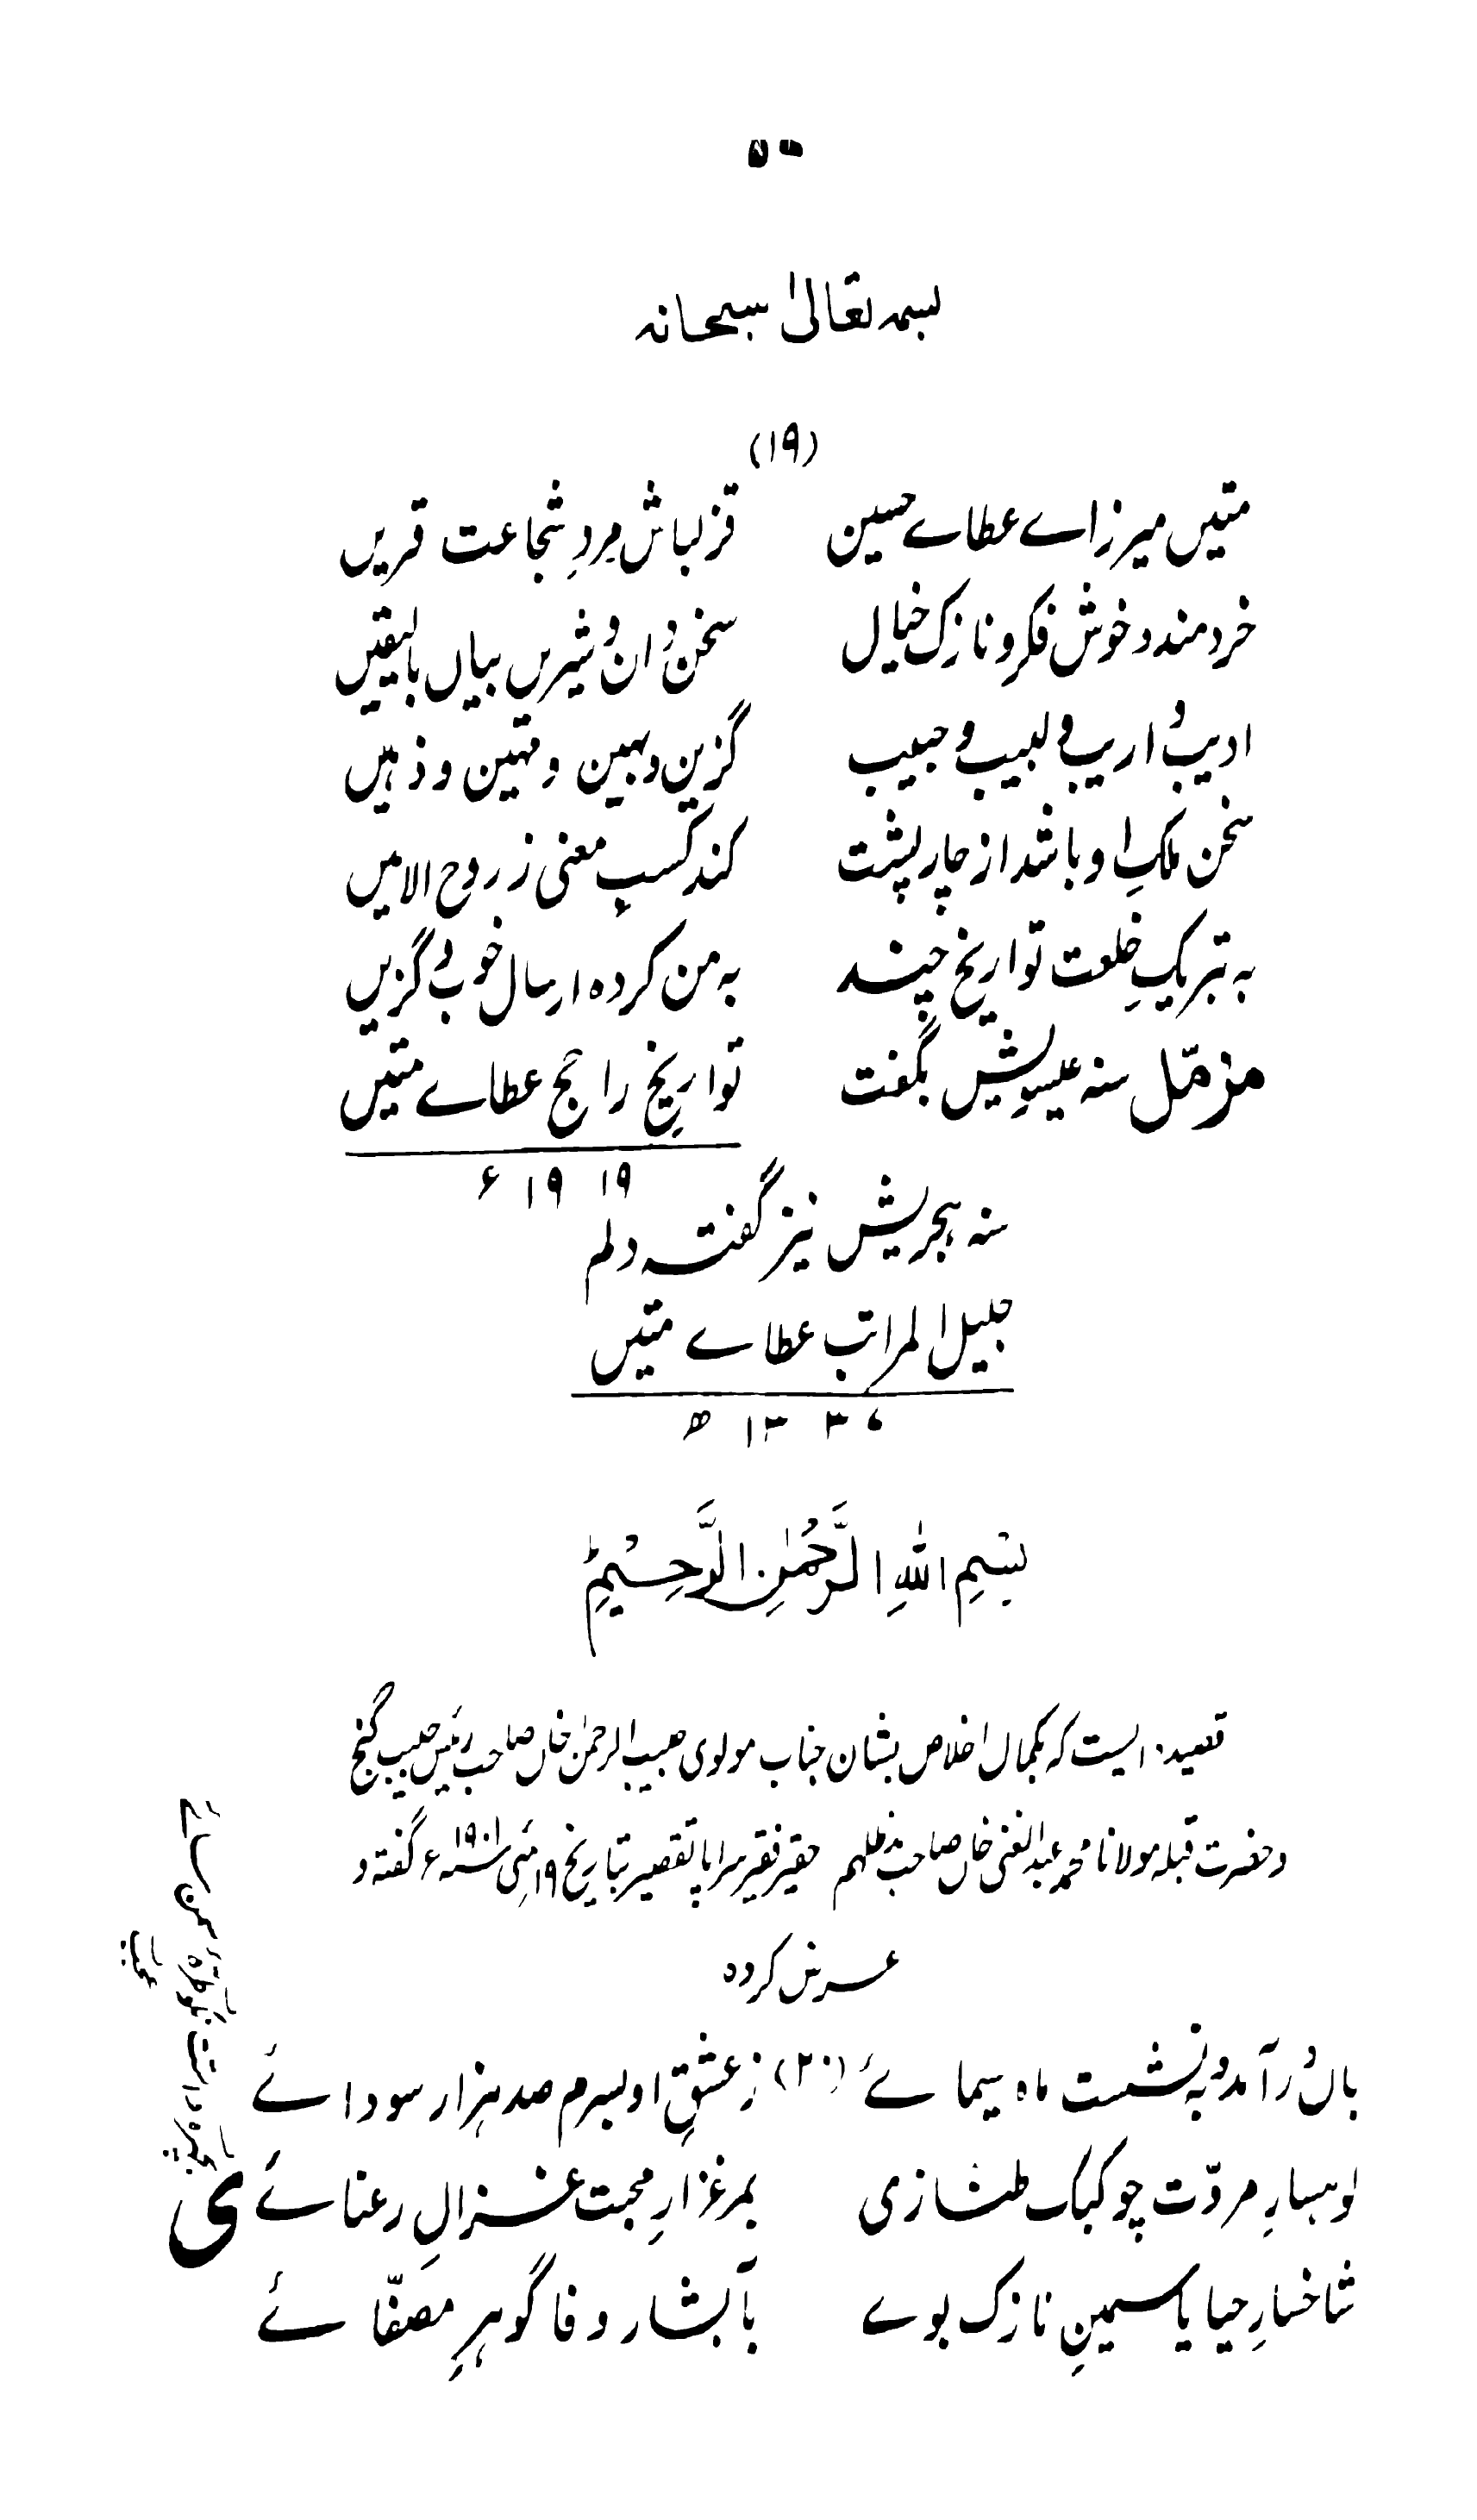 بسمہ تعالیٰ سبحانہ
(۱۹)
متیں میرزاے عطاے حسین قزلباش مردِ شجاعت قریں
خردمند و خوش فکر و نازک خیال سخن دان و شیریں بیاں بالیقیں
ادیبُ اریب و لبیب و حبیب گزین و مہین و متین و ذہیں
سخن ملکِ او باشد از چار پشت کند کسبِ معنی ز روح الامیں
بہ تبریک خلعت تواریخ چند بہ من کردہ ارسال خوب گزیں
مزمّل سنہ عیسویش بگفت تواریخ رائج عطاے متیں
۱۹ ۱۹ ء
سنہ ہجریش نیز گفت دلم
جلیل المراتب عطاے متیں
۱۳ ھ
بِسْمِ اللهِ الرَّحْمٰنِ الرَّحِیْمِ
قصیدہ ایست کہ بکمال اخلاص بشان جناب مولوی حبیب الرحمٰن خاں صاحب رئیس حبیب گنج
و حضرت قبلہ مولانا محمد عبدالغنی خاں صاحب مدظلہم حقیر فقیر سراپا تقصیر بتاریخ ۱۹ مئی ۱۹۰۱ء گفتہ و
عرض کردہ
(۲۰)
بدل در آمد و بنشست ماہ سیمائے ز عشقِ او بسرم صد ہزار سودائے
بہارِ مروّت چو کبک طنازی بمرغزارِ محبت غزال رعنائے
شاخسارِ حیا یاسمینِ نازک بوے بآبشار وفا گوہرِ مصفّائے